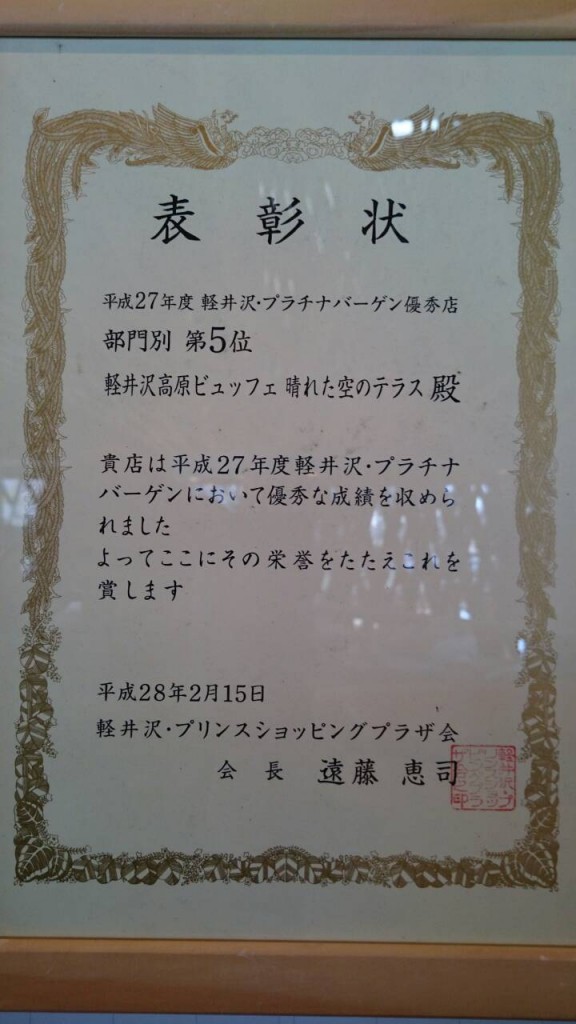 表彰状
平成27年度 軽井沢・プラチナバーゲン優秀店
部門別 第5位
軽井沢高原ビュッフェ 晴れた空のテラス 殿
貴店は平成27年度軽井沢・プラチナ
バーゲンにおいて優秀な成績を収めら
れました
よってここにその栄誉をたたえこれを
賞します
平成28年2月15日
軽井沢・プリンスショッピングプラザ会
会長 遠藤 恵司